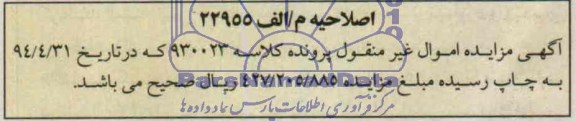 اصلاحیه م/الف ۲۲۹۵۵
آگهی مزایده اموال غیر منقول پرونده کلاسه ۹۳۰۰۲۳ که در تاریخ ۹٤/٤/۳۱
به چاپ رسیده مبلغ مزایده ٤۲۷/۲۰۵/۸۸۵ ریال صحیح می باشد.
مرکز فرآوری اطلاعات پارس نماد داده ها